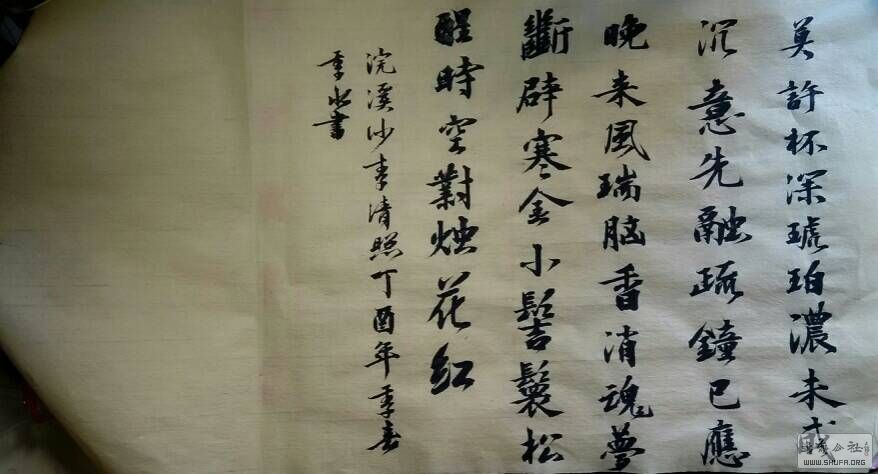 莫許杯深琥珀濃未成
沉意先融疏鐘已應
晚来風瑞脑香消魂夢
斷辟寒金小髻鬟松
醒時空對烛花红
浣溪沙李清照丁酉年季春
季書
公社
WWW.SHUFA.ORG